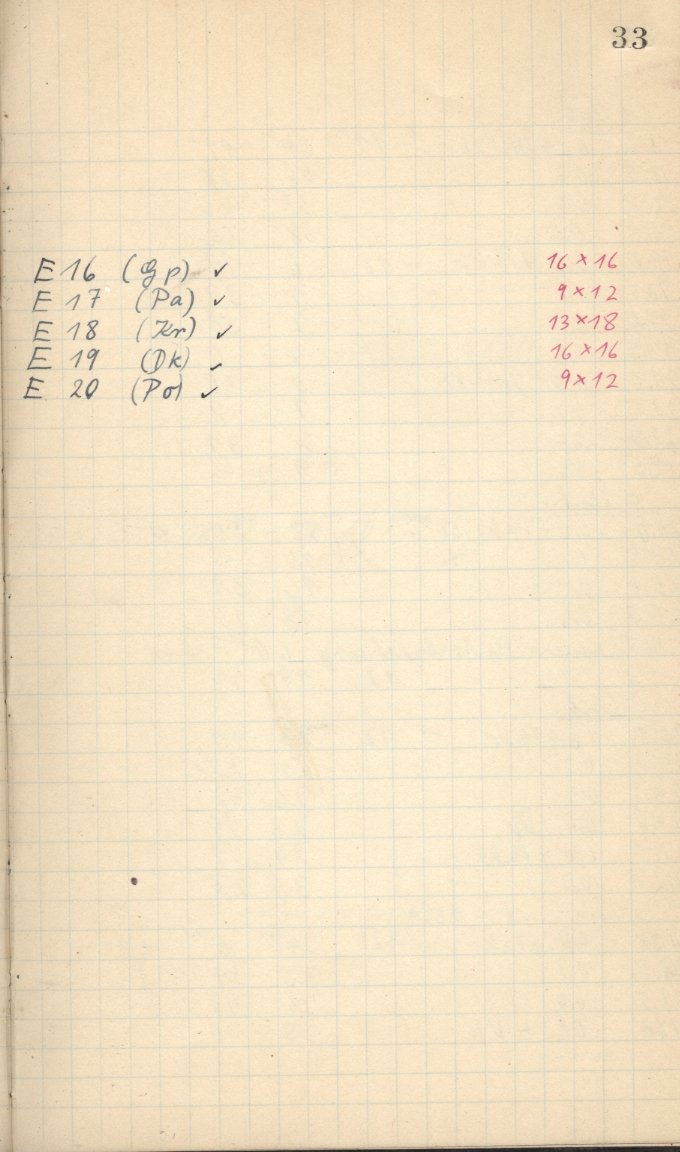 33
E 16 (Gp) ✓ 16 × 16
E 17 (Pa) ✓ 9 × 12
E 18 (Kr) ✓ 13 × 18
E 19 (Dk) ✓ 16 × 16
E 20 (Po) ✓ 9 × 12